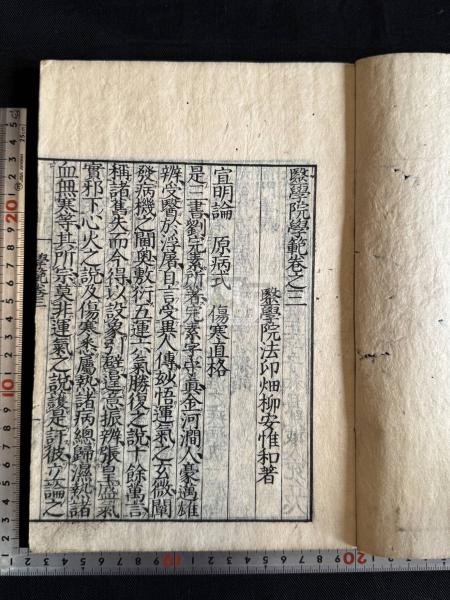 醫學院學範卷之三
醫學院法印畑柳安惟和著
宣明論 原病式 傷寒直格
是三書劉完素所著完素字守眞金河澗人豪邁雄
辨受醫於浮屠自言受異人傳妙悟運氣之玄微闡
發病機之間奧敷衍五運六氣勝復之說十餘萬言
稱諸舊失而今得以設象引譬逞意振辨張皇盛氣
實邪下心火之說及傷寒悉屬熱諸病總歸濕熱諸
血無寒等其所宗莫非運氣之說護是訐彼立論之
學範卷三